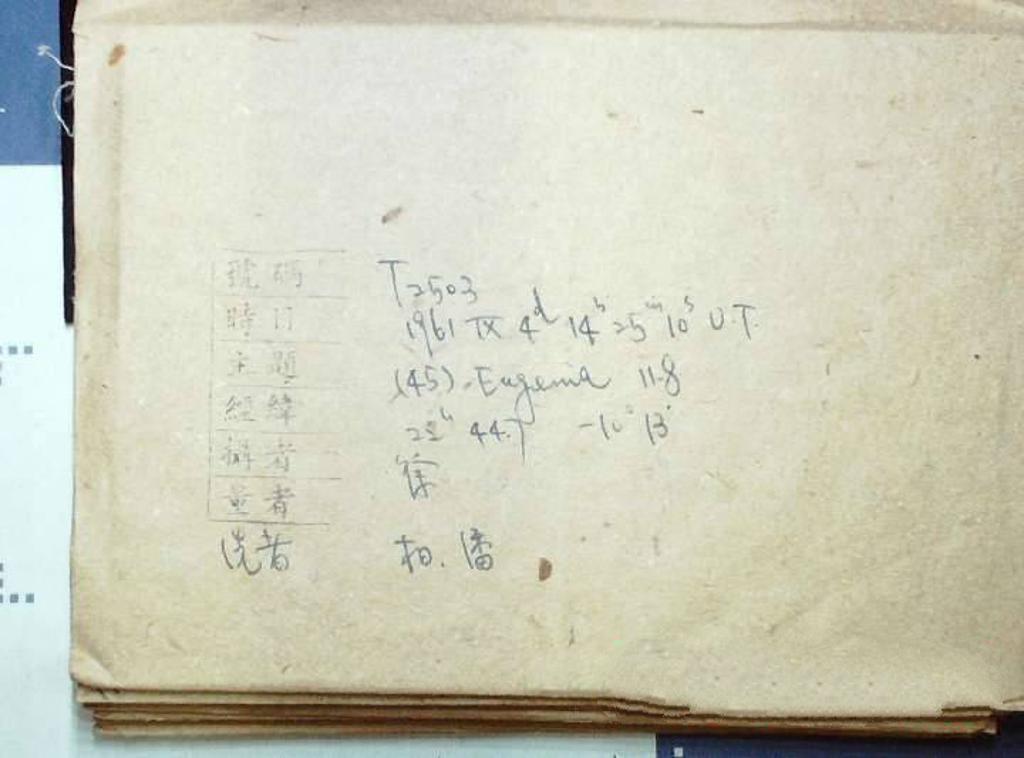 號碼 T2503
時日 1961 IX 4d 14h 25m 10s U.T.
主題 (45). Eugenia 11.8
經緯 22h 44.7 -10° 13'
攝者 徐
量者
洗者 柏. 潘